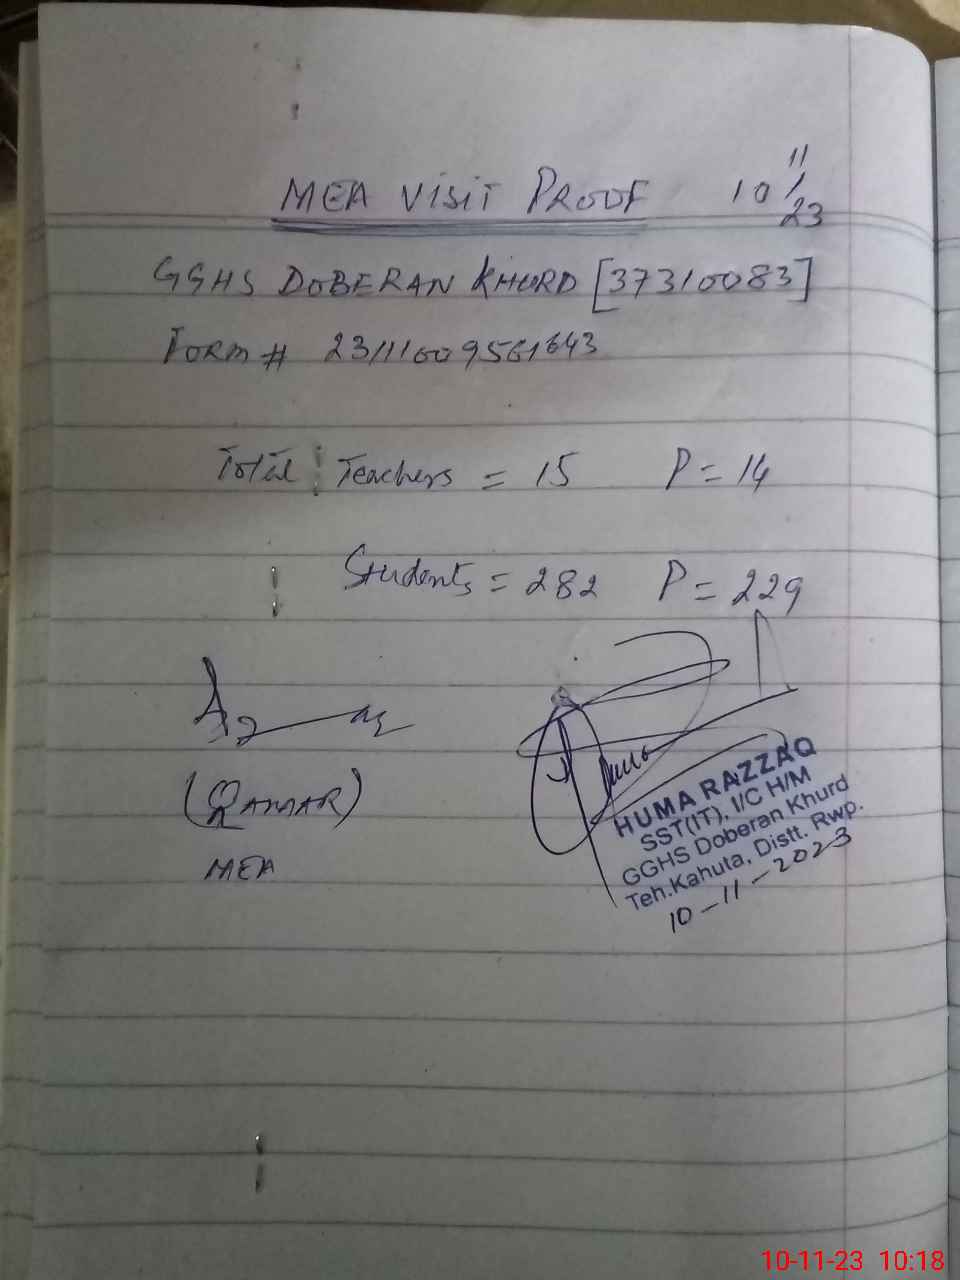 MEA VISIT PROOF 10/11/23
GGHS DOBERAN KHURD [37310083]
FORM # 231116009561643
Total Teachers = 15 P = 14
Students = 282 P = 229
(QAMAR)
MEA
HUMA RAZZAQ
SST(IT), I/C H/M
GGHS Doberan Khurd
Teh.Kahuta, Distt. Rwp.
10-11-2023
10-11-23 10:18